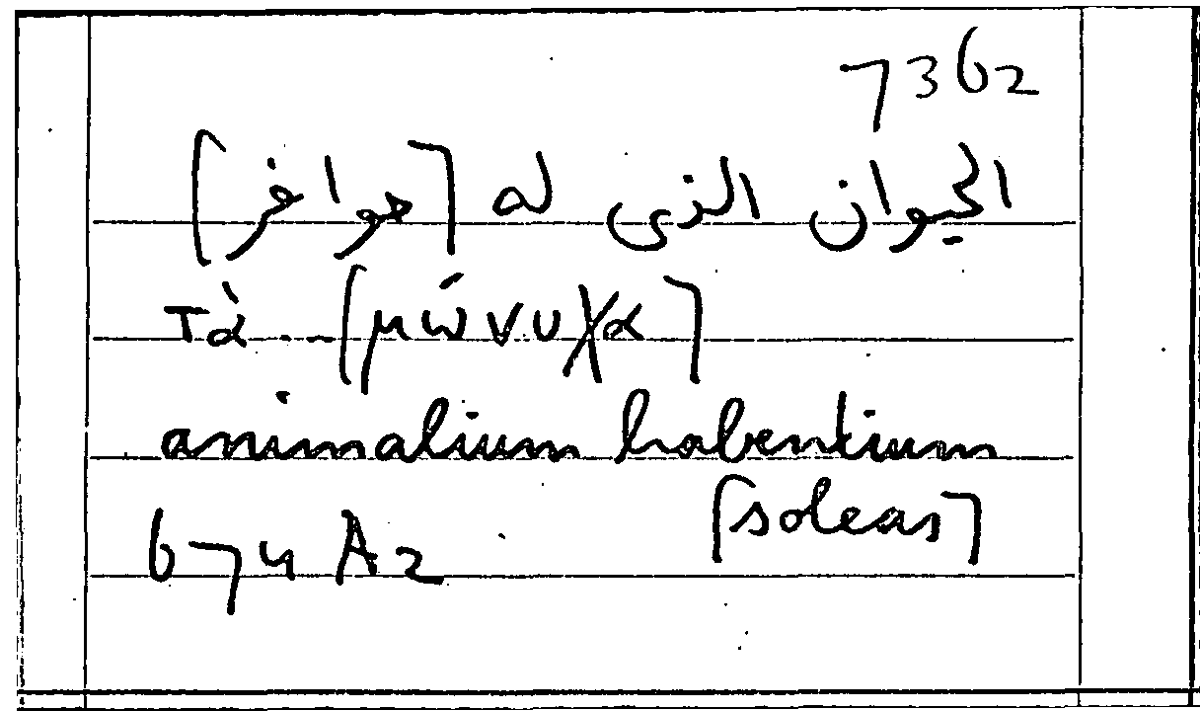 7362
الحيوان الذى له [حوافر]
τὰ ... [μώνυχα]
animalium habentium
[soleas]
674 A2